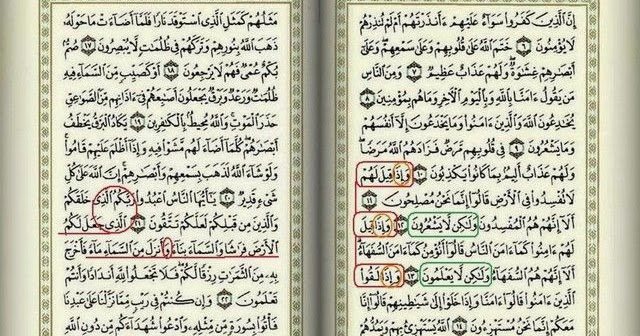 إِنَّ ٱلَّذِينَ كَفَرُوا۟ سَوَآءٌ عَلَيْهِمْ ءَأَنذَرْتَهُمْ أَمْ لَمْ تُنذِرْهُمْ
لَا يُؤْمِنُونَ ٦ خَتَمَ ٱللَّهُ عَلَىٰ قُلُوبِهِمْ وَعَلَىٰ سَمْعِهِمْ وَعَلَىٰٓ
أَبْصَٰرِهِمْ غِشَٰوَةٌ وَلَهُمْ عَذَابٌ عَظِيمٌ ٧ وَمِنَ ٱلنَّاسِ
مَن يَقُولُ ءَامَنَّا بِٱللَّهِ وَبِٱلْيَوْمِ ٱلْءَاخِرِ وَمَا هُم بِمُؤْمِنِينَ ٨
يُخَٰدِعُونَ ٱللَّهَ وَٱلَّذِينَ ءَامَنُوا۟ وَمَا يَخْدَعُونَ إِلَّآ أَنفُسَهُمْ
وَمَا يَشْعُرُونَ ٩ فِى قُلُوبِهِم مَّرَضٌ فَزَادَهُمُ ٱللَّهُ مَرَضًا
وَلَهُمْ عَذَابٌ أَلِيمٌۢ بِمَا كَانُوا۟ يَكْذِبُونَ ١٠ وَإِذَا قِيلَ لَهُمْ
لَا تُفْسِدُوا۟ فِى ٱلْأَرْضِ قَالُوٓا۟ إِنَّمَا نَحْنُ مُصْلِحُونَ ١١
أَلَآ إِنَّهُمْ هُمُ ٱلْمُفْسِدُونَ وَلَٰكِن لَّا يَشْعُرُونَ ١٢ وَإِذَا قِيلَ
لَهُمْ ءَامِنُوا۟ كَمَآ ءَامَنَ ٱلنَّاسُ قَالُوٓا۟ أَنُؤْمِنُ كَمَآ ءَامَنَ ٱلسُّفَهَآءُ
أَلَآ إِنَّهُمْ هُمُ ٱلسُّفَهَآءُ وَلَٰكِن لَّا يَعْلَمُونَ ١٣ وَإِذَا لَقُوا۟
ٱلَّذِينَ ءَامَنُوا۟ قَالُوٓا۟ ءَامَنَّا وَإِذَا خَلَوْا۟ إِلَىٰ شَيَٰطِينِهِمْ قَالُوٓا۟ إِنَّا
مَعَكُمْ إِنَّمَا نَحْنُ مُسْتَهْزِءُونَ ١٤ ٱللَّهُ يَسْتَهْزِئُ بِهِمْ وَيَمُدُّهُمْ
مَثَلُهُمْ كَمَثَلِ ٱلَّذِى ٱسْتَوْقَدَ نَارًا فَلَمَّآ أَضَآءَتْ مَا حَوْلَهُۥ
ذَهَبَ ٱللَّهُ بِنُورِهِمْ وَتَرَكَهُمْ فِى ظُلُمَٰتٍ لَّا يُبْصِرُونَ ١٧ صُمٌّۢ
بُكْمٌ عُمْىٌ فَهُمْ لَا يَرْجِعُونَ ١٨ أَوْ كَصَيِّبٍ مِّنَ ٱلسَّمَآءِ فِيهِ
ظُلُمَٰتٌ وَرَعْدٌ وَبَرْقٌ يَجْعَلُونَ أَصَٰبِعَهُمْ فِىٓ ءَاذَانِهِم مِّنَ ٱلصَّوَٰعِقِ
حَذَرَ ٱلْمَوْتِ وَٱللَّهُ مُحِيطٌۢ بِٱلْكَٰفِرِينَ ١٩ يَكَادُ ٱلْبَرْقُ يَخْطَفُ
أَبْصَٰرَهُمْ كُلَّمَآ أَضَآءَ لَهُم مَّشَوْا۟ فِيهِ وَإِذَآ أَظْلَمَ عَلَيْهِمْ قَامُوا۟
وَلَوْ شَآءَ ٱللَّهُ لَذَهَبَ بِسَمْعِهِمْ وَأَبْصَٰرِهِمْ إِنَّ ٱللَّهَ عَلَىٰ كُلِّ
شَىْءٍ قَدِيرٌ ٢٠ يَٰٓأَيُّهَا ٱلنَّاسُ ٱعْبُدُوا۟ رَبَّكُمُ ٱلَّذِى خَلَقَكُمْ
وَٱلَّذِينَ مِن قَبْلِكُمْ لَعَلَّكُمْ تَتَّقُونَ ٢١ ٱلَّذِى جَعَلَ لَكُمُ
ٱلْأَرْضَ فِرَٰشًا وَٱلسَّمَآءَ بِنَآءً وَأَنزَلَ مِنَ ٱلسَّمَآءِ مَآءً فَأَخْرَجَ
بِهِۦ مِنَ ٱلثَّمَرَٰتِ رِزْقًا لَّكُمْ فَلَا تَجْعَلُوا۟ لِلَّهِ أَندَادًا وَأَنتُمْ
تَعْلَمُونَ ٢٢ وَإِن كُنتُمْ فِى رَيْبٍ مِّمَّا نَزَّلْنَا عَلَىٰ عَبْدِنَا
فَأْتُوا۟ بِسُورَةٍ مِّن مِّثْلِهِۦ وَٱدْعُوا۟ شُهَدَآءَكُم مِّن دُونِ ٱللَّهِ